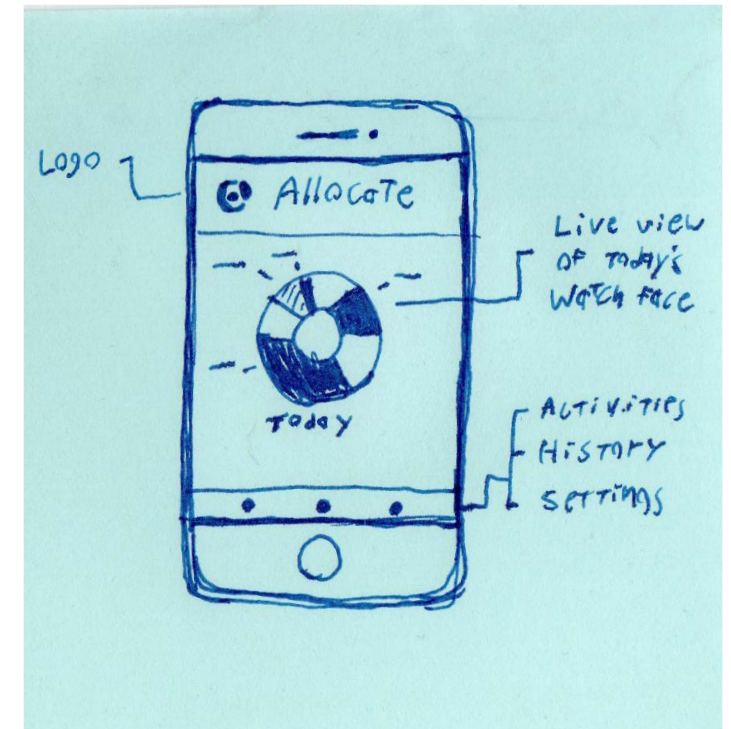 Logo
Allocate
Live view
of Today's
Watch Face
Today
Activities
History
Settings